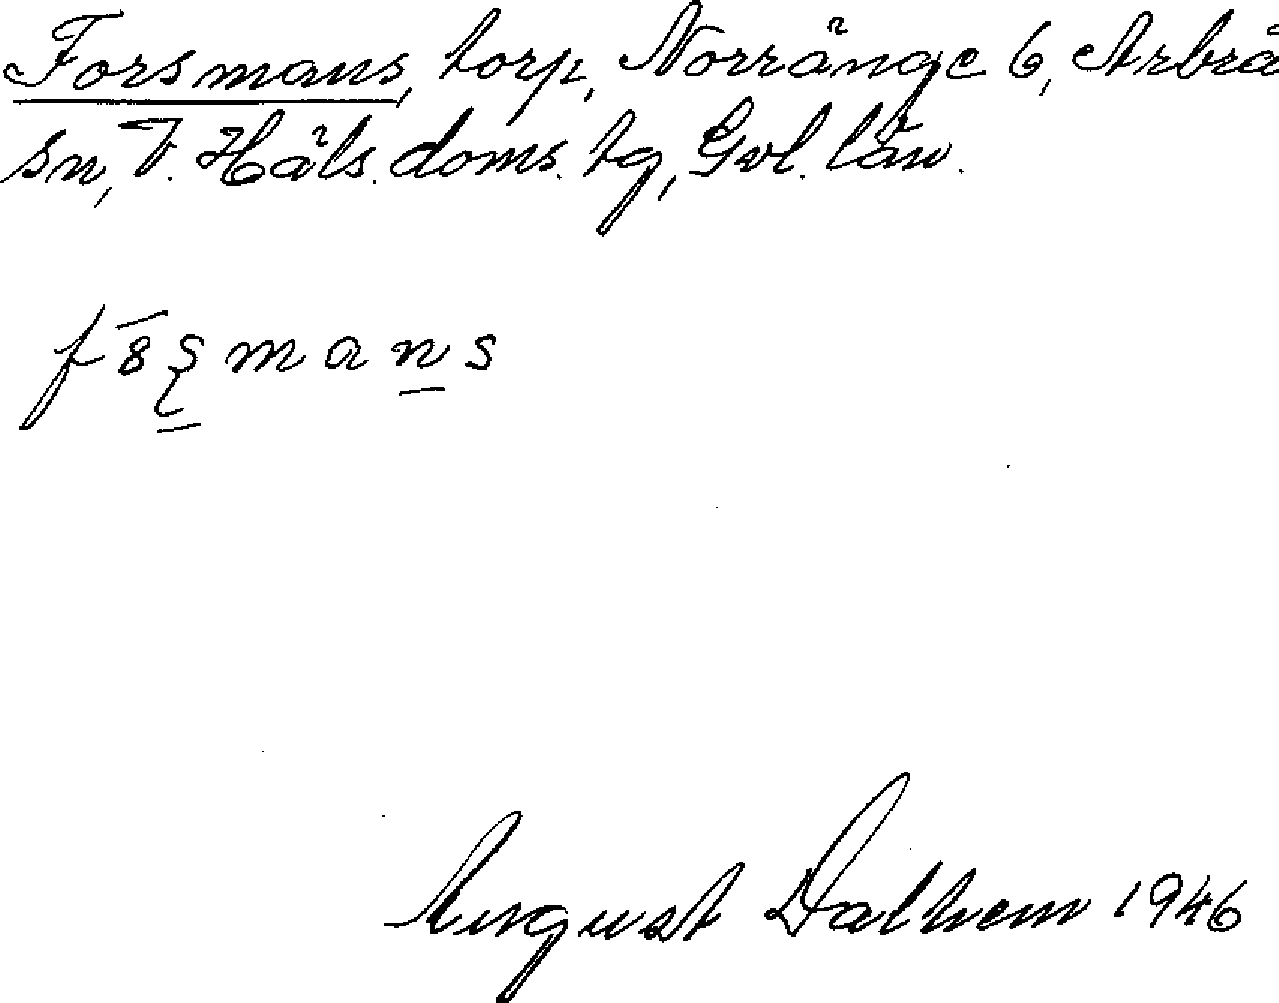 Forsmans, torp, Norränge 6, Arbrå
sn, V. Häls. doms. tg, Gvl. län.
f8̄ʂmans
August Dalhem 1946